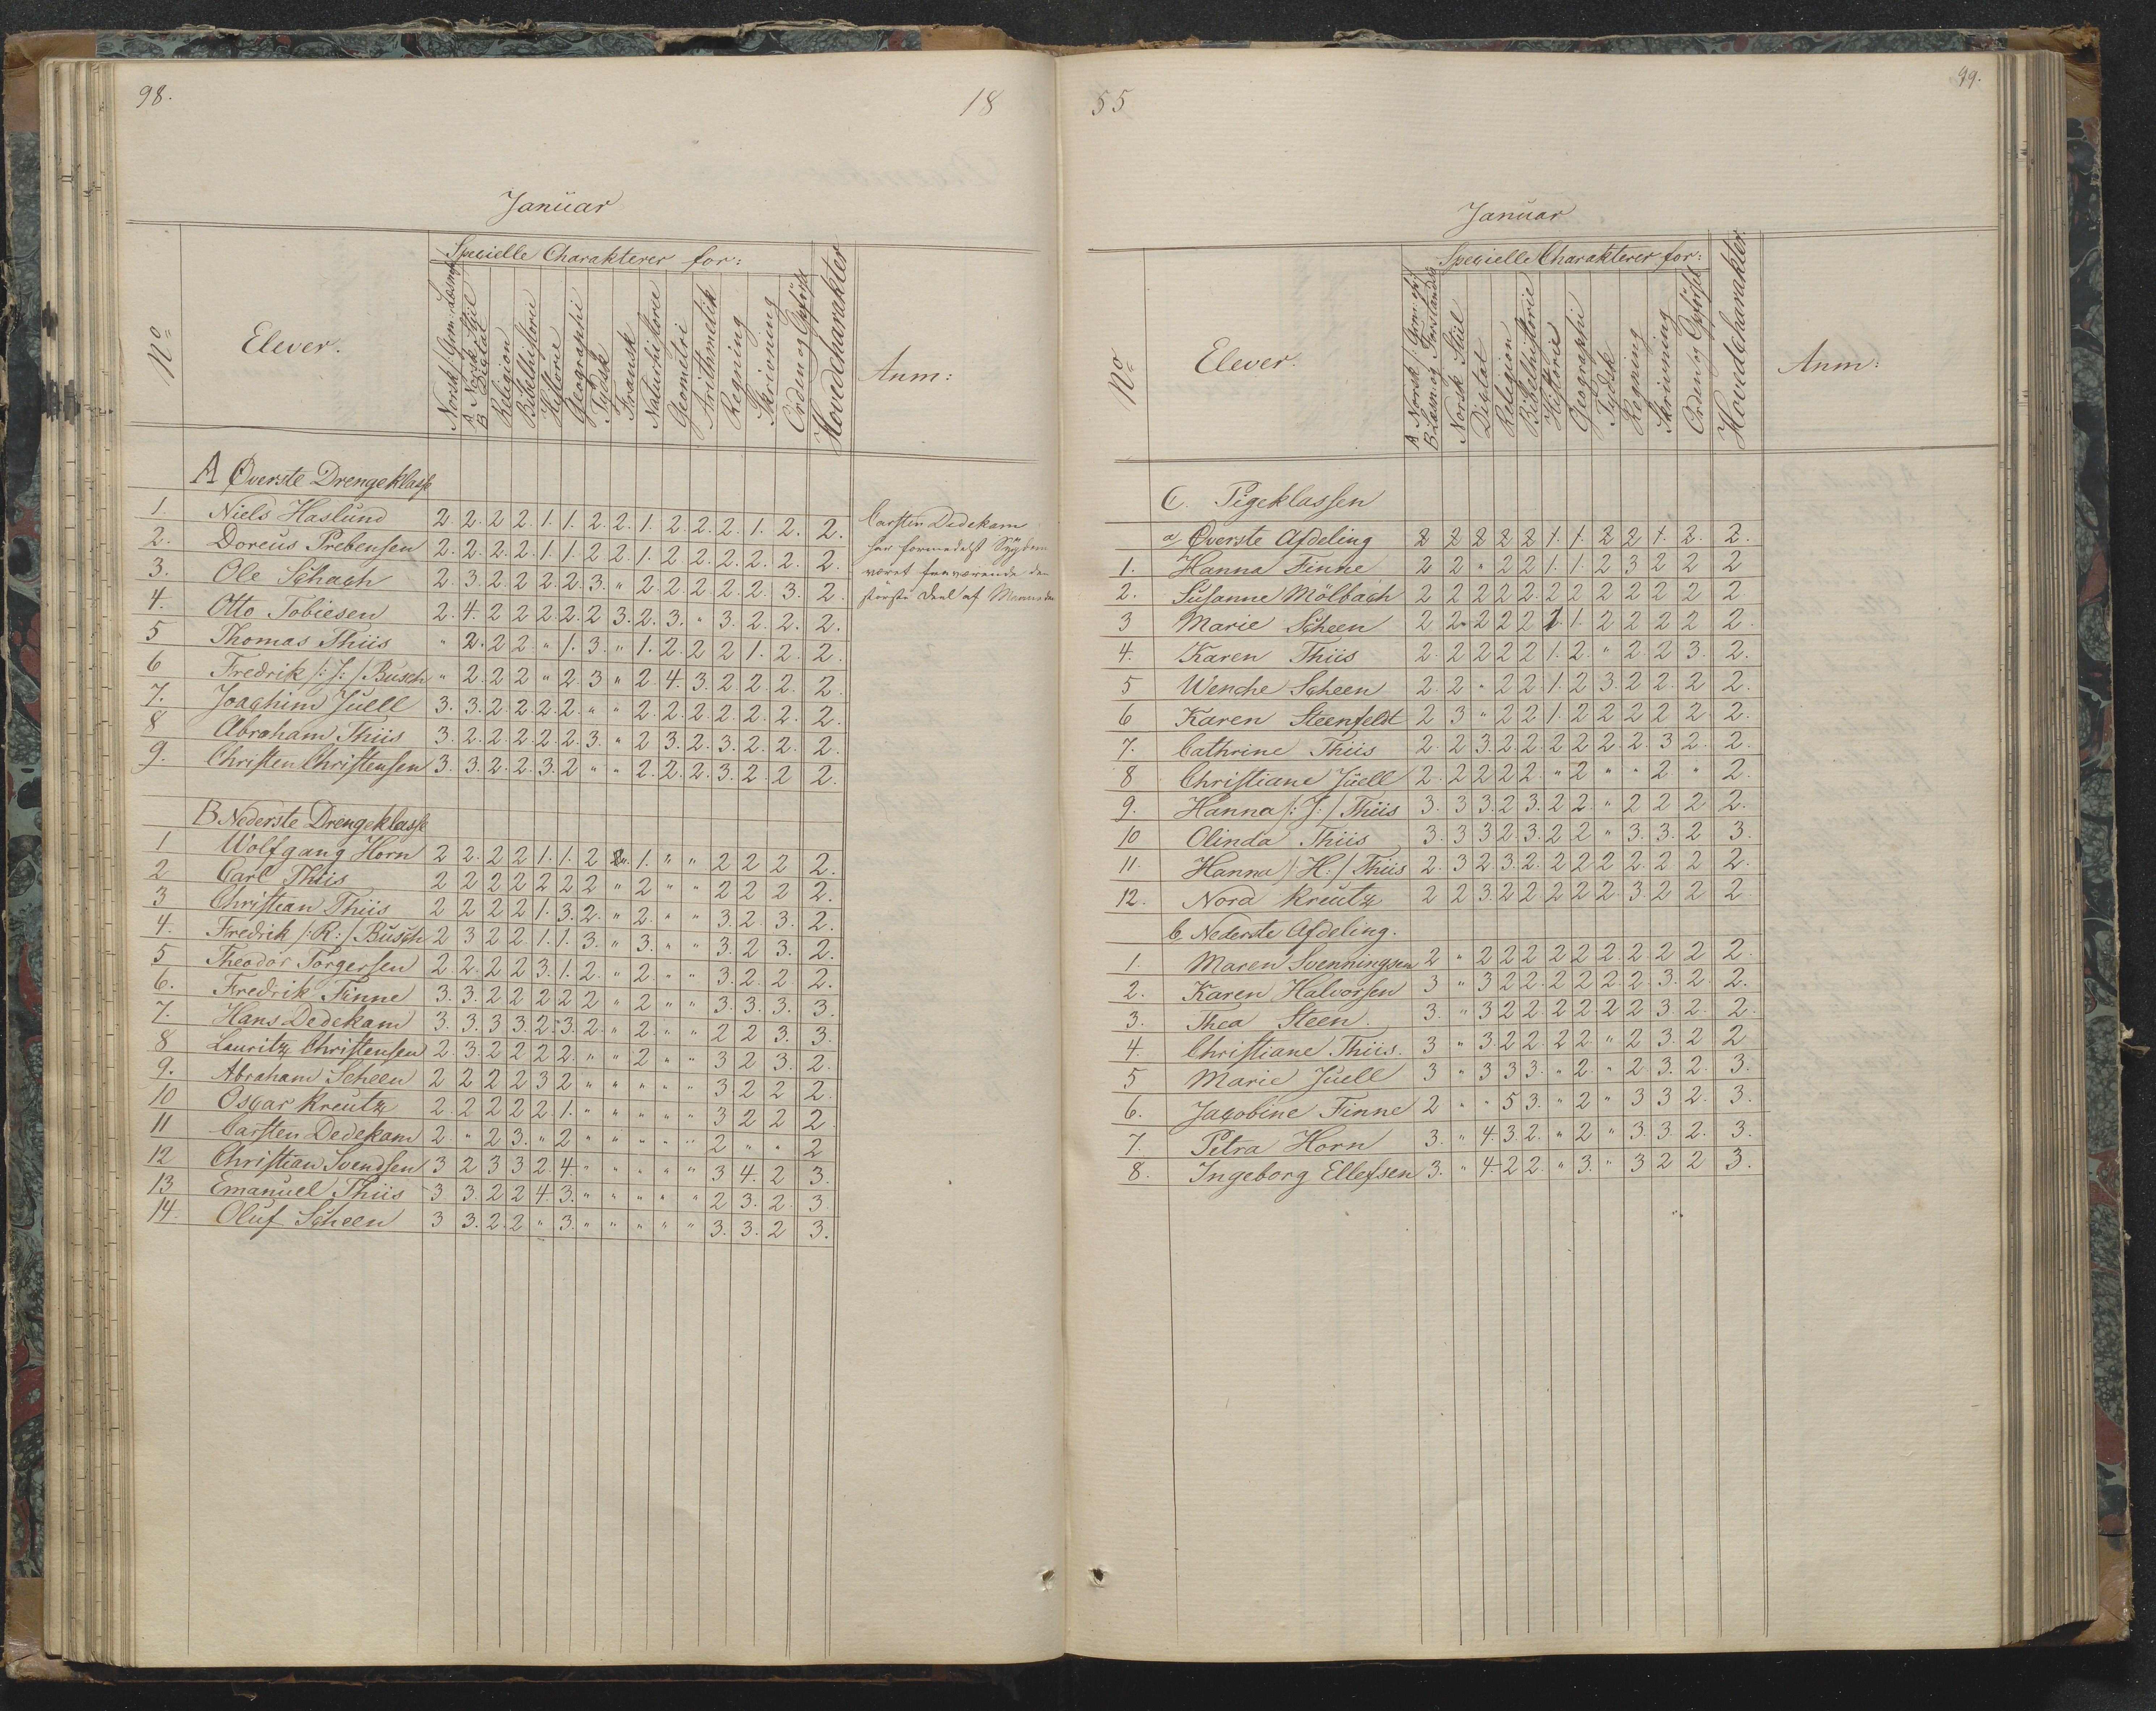 98.
18
Januar
No
Elever.
Specielle Charakterer for:
Norsk Gram: Læsning
A Norsk Stiil
B Dictat
Religion
Bibelhistorie
Historie
Geographi
Tydsk
Fransk
Naturhistorie
Geometri
Arithmetik
Regning
Skrivning
Orden og Opførsel
Hovedcharakter
Anm:
A Øverste Drengeklasse
1. Niels Haslund 2. 2. 2 2. 1. 1. 2. 2. 1. 2. 2. 2. 1. 2. 2.
2. Doreus Prebensen 2. 2. 2. 2. 1. 1. 2 2. 1. 2. 2. 2. 2. 2. 2.
3. Ole Schach 2. 3. 2 2 2. 2. 3. " 2. 2. 2. 2. 2. 3. 2.
4. Otto Tobiesen 2. 4. 2 2 2. 2. 2 3. 2. 3. " 3. 2. 2. 2.
5 Thomas Thiis " 2. 2 2. " 1. 3. " 1. 2. 2 2 1. 2. 2.
6 Fredrik /: J: / Busch " 2. 2. 2 " 2. 3 " 2. 4. 3. 2 2. 2. 2.
7. Joachim Juell 3. 3. 2. 2. 2. 2. " " 2. 2. 2. 2. 2. 2. 2.
8 Abraham Thiis 3. 2. 2. 2. 2. 2. 3. " 2 3. 2. 3. 2. 2. 2.
9. Christen Christensen 3. 3. 2. 2. 3. 2 " " 2. 2. 2. 3. 2. 2 2.
Carsten Dedekam
har formedelst Sygdom
været fraværende den
største Deel af Maaneden
B Nederste Drengeklasse
1 Wolfgang Horn 2 2. 2 2 1. 1. 2 " 1. " " 2 2 2 2.
2 Carl Thiis 2 2 2 2 2 2 2 " 2 " " 2 2 2 2.
3 Christian Thiis 2 2 2 2 1. 3. 2. " 2. " " 3 2. 3. 2.
4. Fredrik /: R: / Busch 2 3 2 2. 1. 1. 3. " 3. " " 3. 2 3. 2.
5 Theodor Torgersen 2. 2. 2 2 3. 1. 2. " 2 " " 3. 2. 2. 2.
6. Fredrik Finne 3. 3. 2 2 2 2 2 " 2 " " 3. 3. 3. 3.
7. Hans Dedekam 3. 3. 3 3. 2. 3. 2. " 2. " " 2 2 3. 3.
8 Lauritz Christensen 2. 3. 2 2 2 2. " " 2 " " 3 2 3. 2.
9. Abraham Scheen 2 2 2 2 3 2 " " " " " 3 2 2 2.
10 Oscar Kreutz 2. 2 2 2 2. 1. " " " " " 3 2 2 2.
11 Carsten Dedekam 2. " 2 3. " 2 " " " " " 2 " " 2
12 Christian Svendsen 3 2 3 3 2. 4. " " " " " 3 4. 2 3.
13 Emanuel Thiis 3 3. 2 2 4. 3. " " " " " 2 3. 2. 3
14. Oluf Scheen 3 3. 2. 2 " 3. " " " " " 3. 3. 2 3.
55
99.
Januar
No
Elever.
Specielle Charakterer for:
A Norsk Gram: og
B Læsn: og Forstandsø
Norsk Stiil
Dictat
Religion
Bibelhistorie
Historie
Geographi
Tydsk
Regning
Skrivning
Orden og Opførsel
Hovedcharakter
Anm:
C. Pigeklassen
a Øverste Afdeling 2 2 2 2 2 1. 1. 2 2 1. 2. 2.
1. Hanna Finne 2 2 " 2 2 1. 1. 2 3 2 2 2
2. Susanne Mölbach 2 2 2 2 2. 2 2 2 2 2 2 2
3 Marie Scheen 2 2 2 2 2 1. 1. 2 2 2 2 2.
4. Karen Thiis 2. 2 2 2 2 1. 2. " 2 2 3. 2.
5 Wenche Scheen 2. 2 " 2 2 1. 2 3. 2 2. 2 2.
6 Karen Steenfeldt 2 3 " 2 2 1. 2 2 2 2 2. 2.
7. Cathrine Thiis 2. 2 3. 2. 2. 2 2 2. 2. 3 2. 2.
8 Christiane Juell 2. 2 2 2 2. " 2 " " 2 " 2.
9. Hanna /: J: / Thiis 3. 3 3. 2 3. 2 2. " 2 2 2 2.
10 Olinda Thiis 3. 3 3 2 3. 2 2 " 3. 3. 2 3.
11. Hanna /: H: / Thiis 2. 3 2 3. 2. 2 2 2 2 2 2 2.
12. Nora Kreutz 2 2 3. 2 2 2 2 2. 3. 2 2 2
b. Nederste Afdeling.
1. Maren Svenningsen 2 " 2 2 2 2 2 2. 2. 2 2 2.
2. Karen Halvorsen 3 " 3 2 2. 2 2 2. 2. 3. 2. 2.
3. Thea Steen. 3. " 3 2 2. 2 2 2 2 3. 2. 2.
4. Christiane Thiis. 3 " 3. 2 2. 2 2. " 2 3. 2 2
5 Marie Juell 3 " 3 3 3. " 2. " 2 3. 2. 3.
6. Jacobine Finne 2 " " 5 3. " 2 " 3 3 2. 3.
7. Petra Horn 3. " 4. 3. 2. " 2 " 3. 3. 2. 3.
8. Ingeborg Ellefsen 3. " 4. 2 2. " 3. " 3 2 2 3.